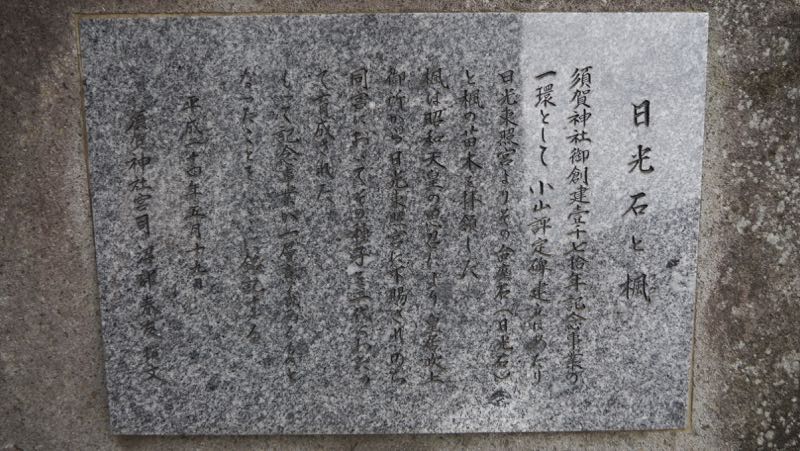 日光石と楓
須賀神社御創建壹千七拾年記念事業の
一環として 小山評定碑建立にあたり
日光東照宮よりその台座石(日光石)
と楓の苗木を拝領した
楓は昭和天皇の により 皇居吹上
御所から日光東照宮に下賜されのち
同宮においてその種子を
て育成
もって記念事業が一層
なったことをここに銘記する
平成二十四年五月十九日
須賀神社宮司